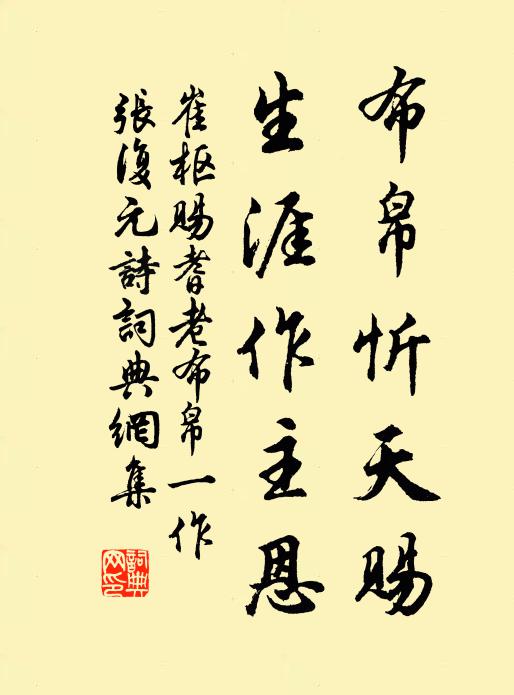 布帛忻天賜
生涯作主恩
崔枢賜耆老布帛一作
張復元詩詞典網集
詞典
网印